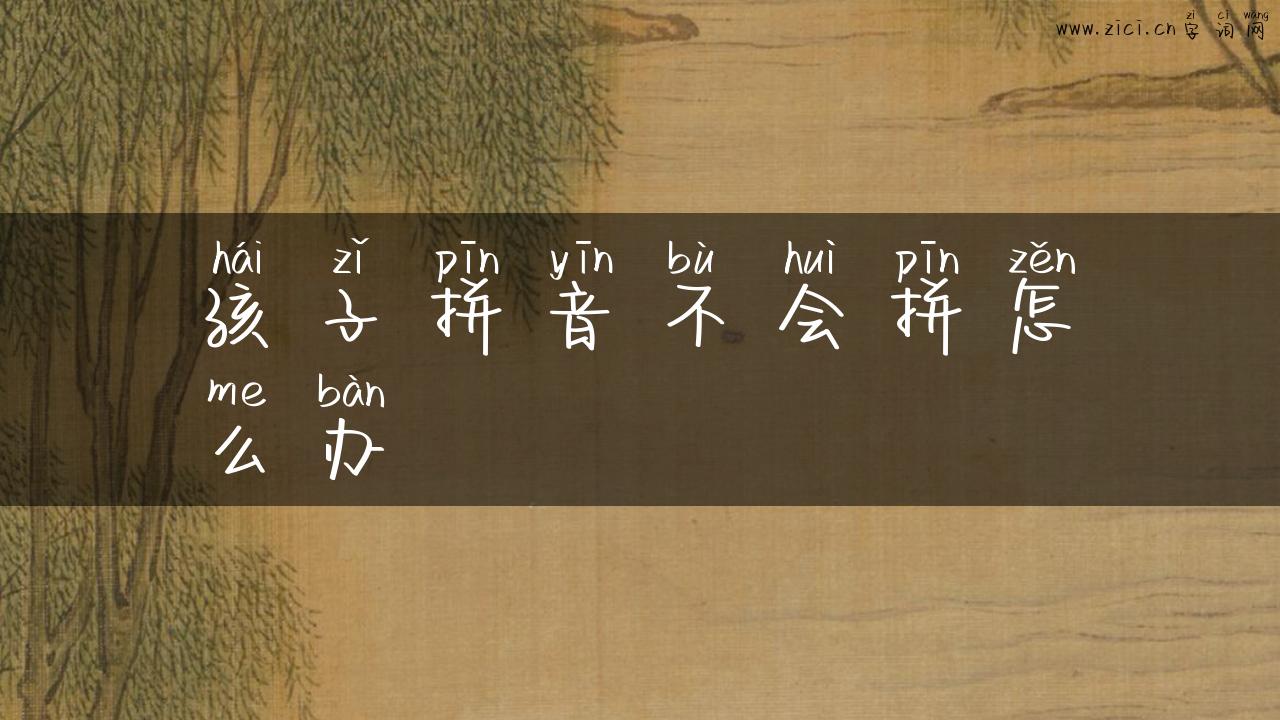 zì cí wǎng
www.zici.cn 字词网
hái zǐ pīn yīn bù huì pīn zěn
孩子拼音不会拼怎
me bàn
么办